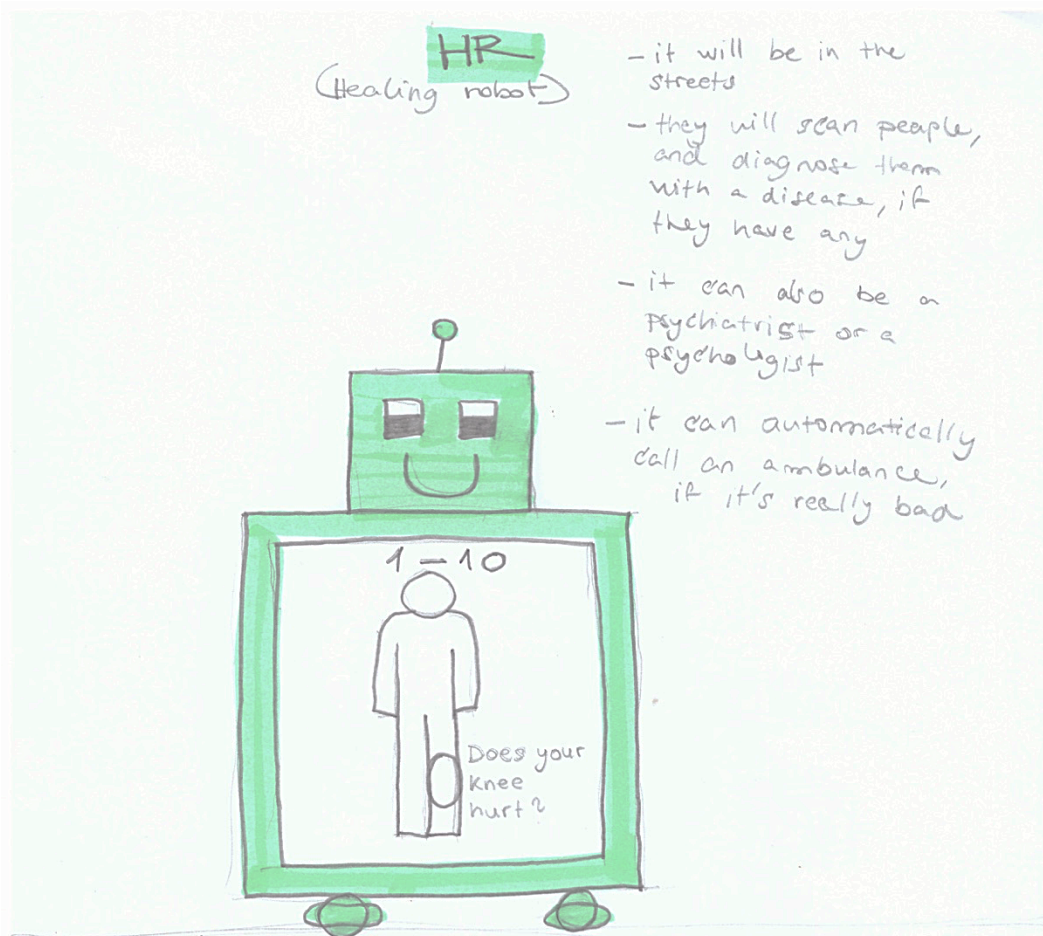 HR
(Healing robot)
- it will be in the
streets
- they will scan peaple,
and diagnose them
with a disease, if
they have any
- it can also be a
psychiatrist or a
psychologist
- it can automatically
call an ambulance,
if it's really bad
1-10
Does your
knee
hurt?